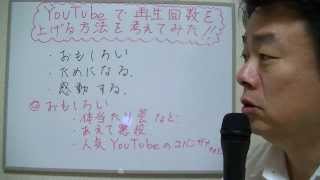 YouTubeで再生回数を
上げる方法を考えてみた!!
・おもしろい
・ためになる.
・感動する.
◎おもしろい
・体当たり芸など.
・あえて悪役
・人気YouTubeのコバンザメ